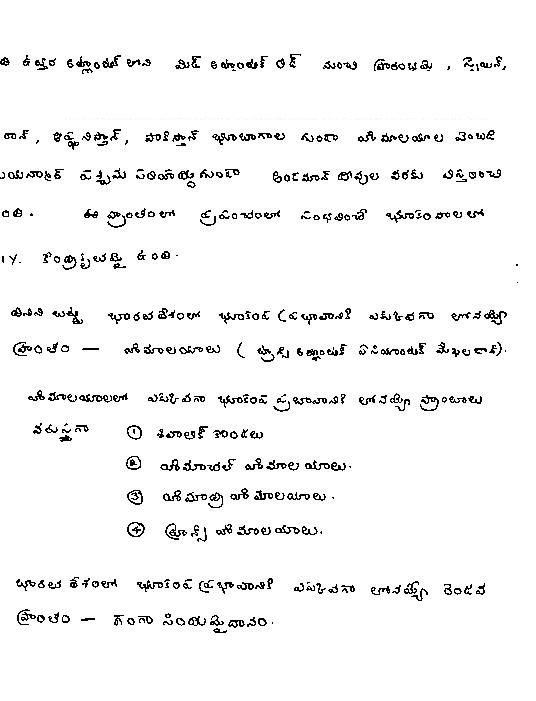 ది ఉత్తర అట్లాంటిక్ లోని మిడ్ అట్లాంటిక్ రిడ్జ్ నుంచి ప్రారంభమై, స్పెయిన్,
రాన్, ఆఫ్ఘనిస్తాన్, పాకిస్తాన్ భూభాగాల గుండా హిమాలయాల వెంబడి
మయన్మార్ పశ్చిమ సరిహద్దు గుండా అండమాన్ దీవుల వరకు విస్తరించి
ంది. ఈ ప్రాంతంలో ప్రపంచంలో సంభవించే భూకంపాలలో
1%. కేంద్రీకృతమై ఉంది.
దీనిని బట్టి భారతదేశంలో భూకంప ప్రభావానికి ఎక్కువగా లోనయ్యే
ప్రాంతం — హిమాలయాలు ( ట్రాన్స్ అట్లాంటిక్ ఏసియాటిక్ మేఖలలో).
హిమాలయాలలో ఎక్కువగా భూకంప ప్రభావానికి లోనయ్యే ప్రాంతాలు
వరుసగా ① శివాలిక్ కొండలు
② హిమాచల్ హిమాలయాలు.
③ హిమాద్రి హిమాలయాలు.
④ ట్రాన్స్ హిమాలయాలు.
భారత దేశంలో భూకంప ప్రభావానికి ఎక్కువగా లోనయ్యే రెండవ
ప్రాంతం — గంగా సింధు మైదానం.